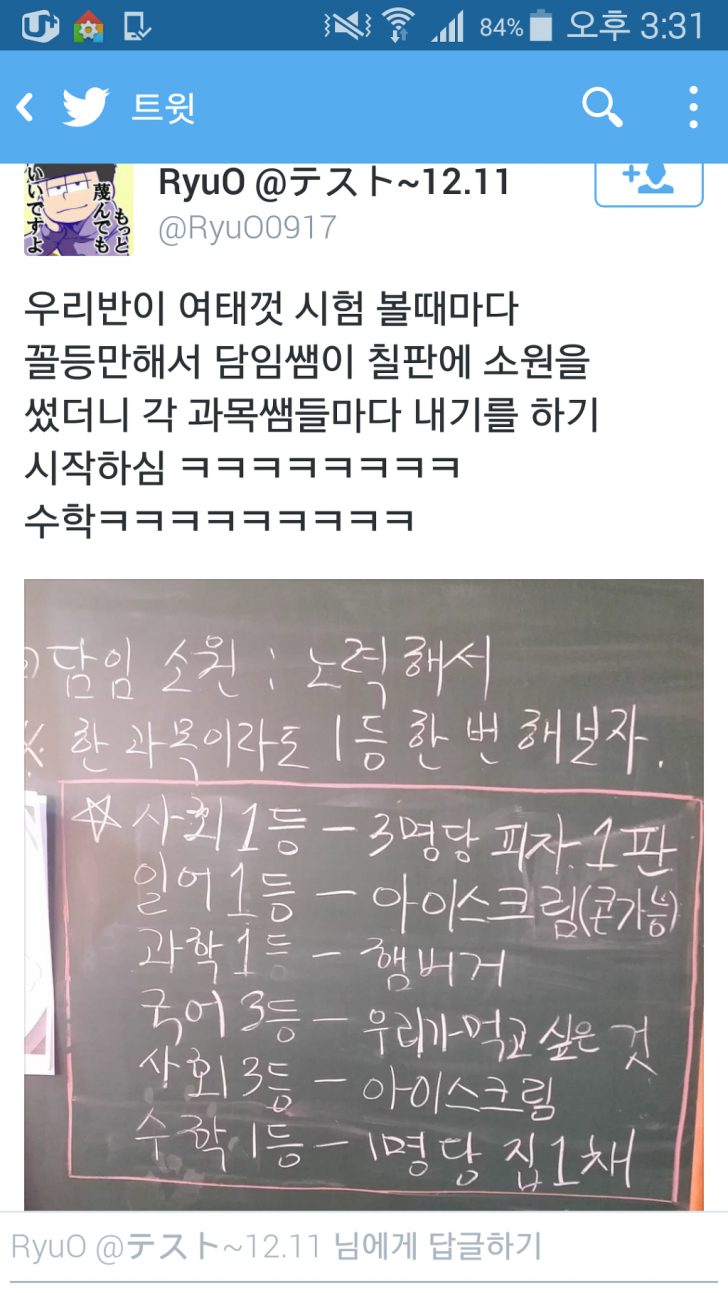 84% 오후 3:31
트윗
RyuO @テスト~12.11
@RyuO0917
もっと
蔑んでも
いいですよ
우리반이 여태껏 시험 볼때마다
꼴등만해서 담임쌤이 칠판에 소원을
썼더니 각 과목쌤들마다 내기를 하기
시작하심 ㅋㅋㅋㅋㅋㅋㅋㅋ
수학ㅋㅋㅋㅋㅋㅋㅋㅋㅋ
담임 소원 : 노력해서
※ 한 과목이라도 1등 한 번 해보자.
☆ 사회 1등 - 3명당 피자 1판
일어 1등 - 아이스크림(콘가능)
과학 1등 - 햄버거
국어 3등 - 우리가 먹고 싶은 것
사회 3등 - 아이스크림
수학 1등 - 1명당 집 1채
RyuO @テスト~12.11 님에게 답글하기